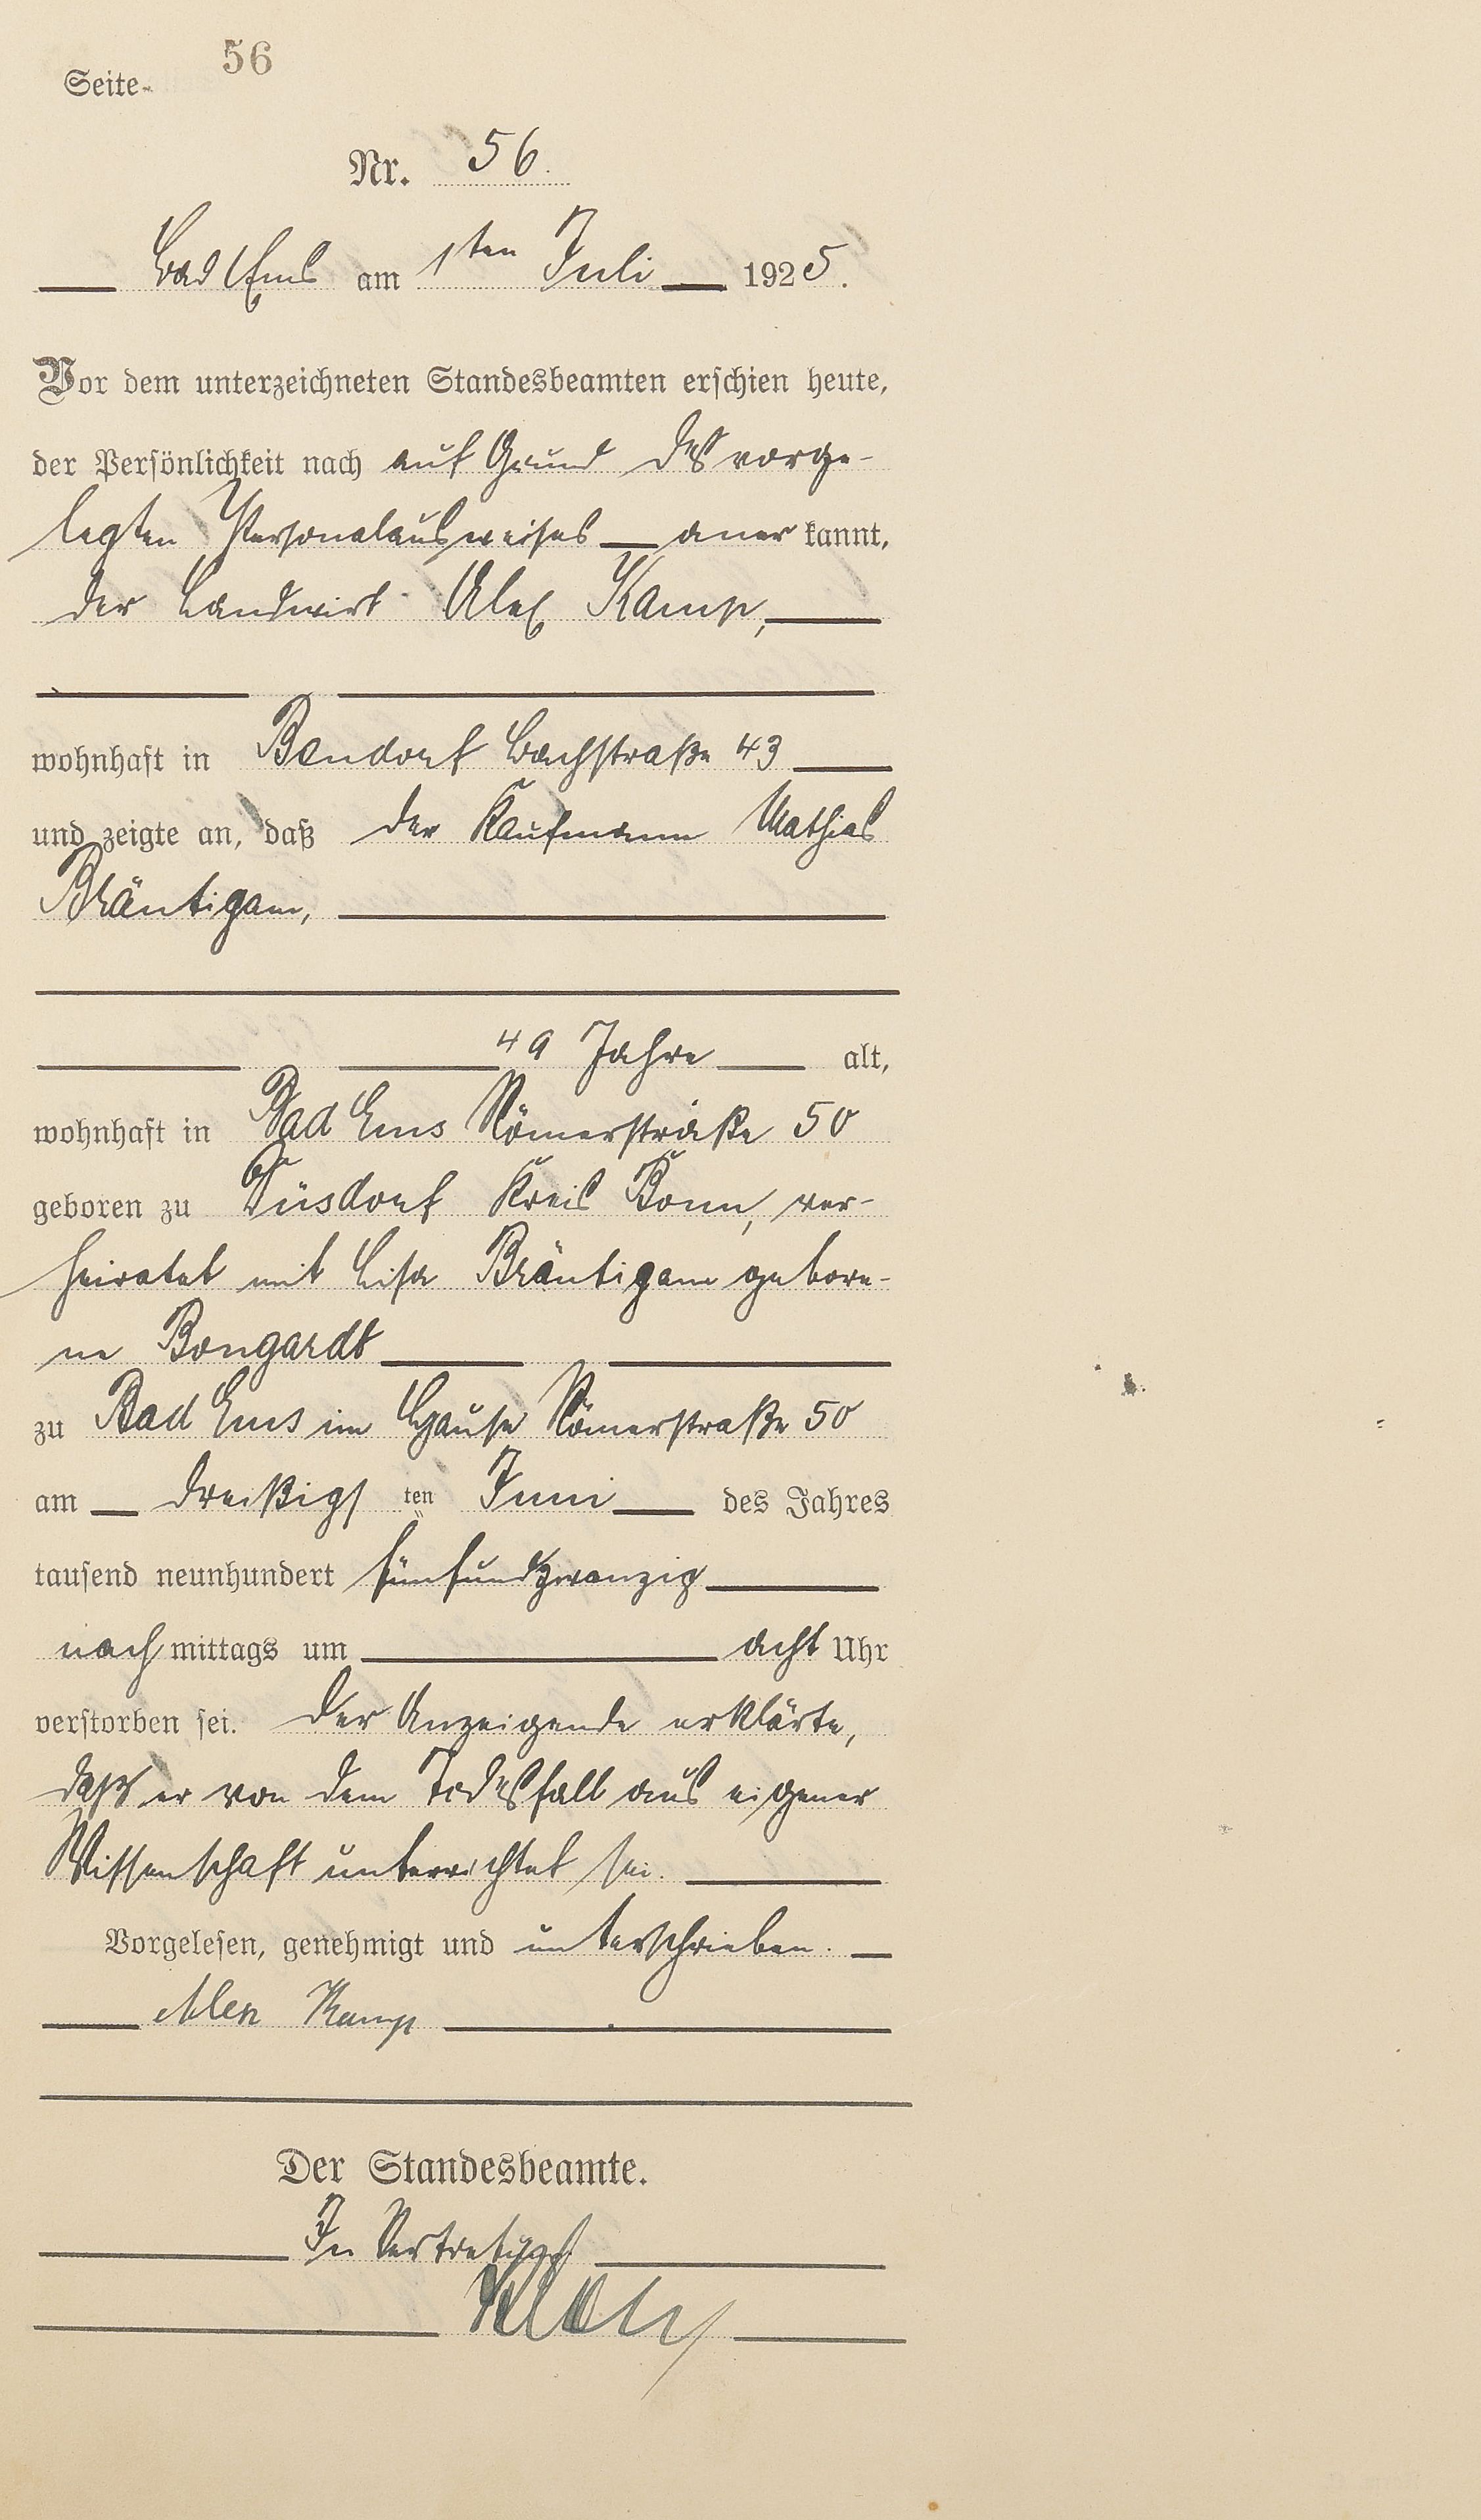 Seite 56
Nr. 56.
Bad Ems am 1ten Juli 1925.
Vor dem unterzeichneten Standesbeamten erschien heute,
der Persönlichkeit nach auf Grund des vorge-
legten Personalausweises anerkannt,
der Landwirt Alex Kamp,
wohnhaft in Bendorf Bachstraße 43
und zeigte an, daß der Kaufmann Mathias
Bräutigam,
49 Jahre alt,
wohnhaft in Bad Ems Römerstraße 50
geboren zu Kreis Bonn, ver-
heiratet mit Lisa Bräutigam gebore-
ne Bongardt
zu Bad Ems im Hause Römerstraße 50
am dreißigsten Juni des Jahres
tausend neunhundert fünfundzwanzig
nachmittags um acht Uhr
verstorben sei. Der Anzeigende erklärte,
daß er von dem Todesfall aus eigener
Wissenschaft unterrichtet sei.
Vorgelesen, genehmigt und unterschrieben.
Alex Kamp
Der Standesbeamte.
In Vertretung